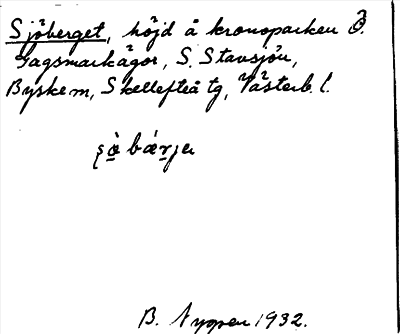 Sjöberget, höjd å kronoparken Ö.
Gagsmarkågor, S. Stavsjön,
Byske m, Skellefteå tg, Västerb. l.
B. Nygren 1932.